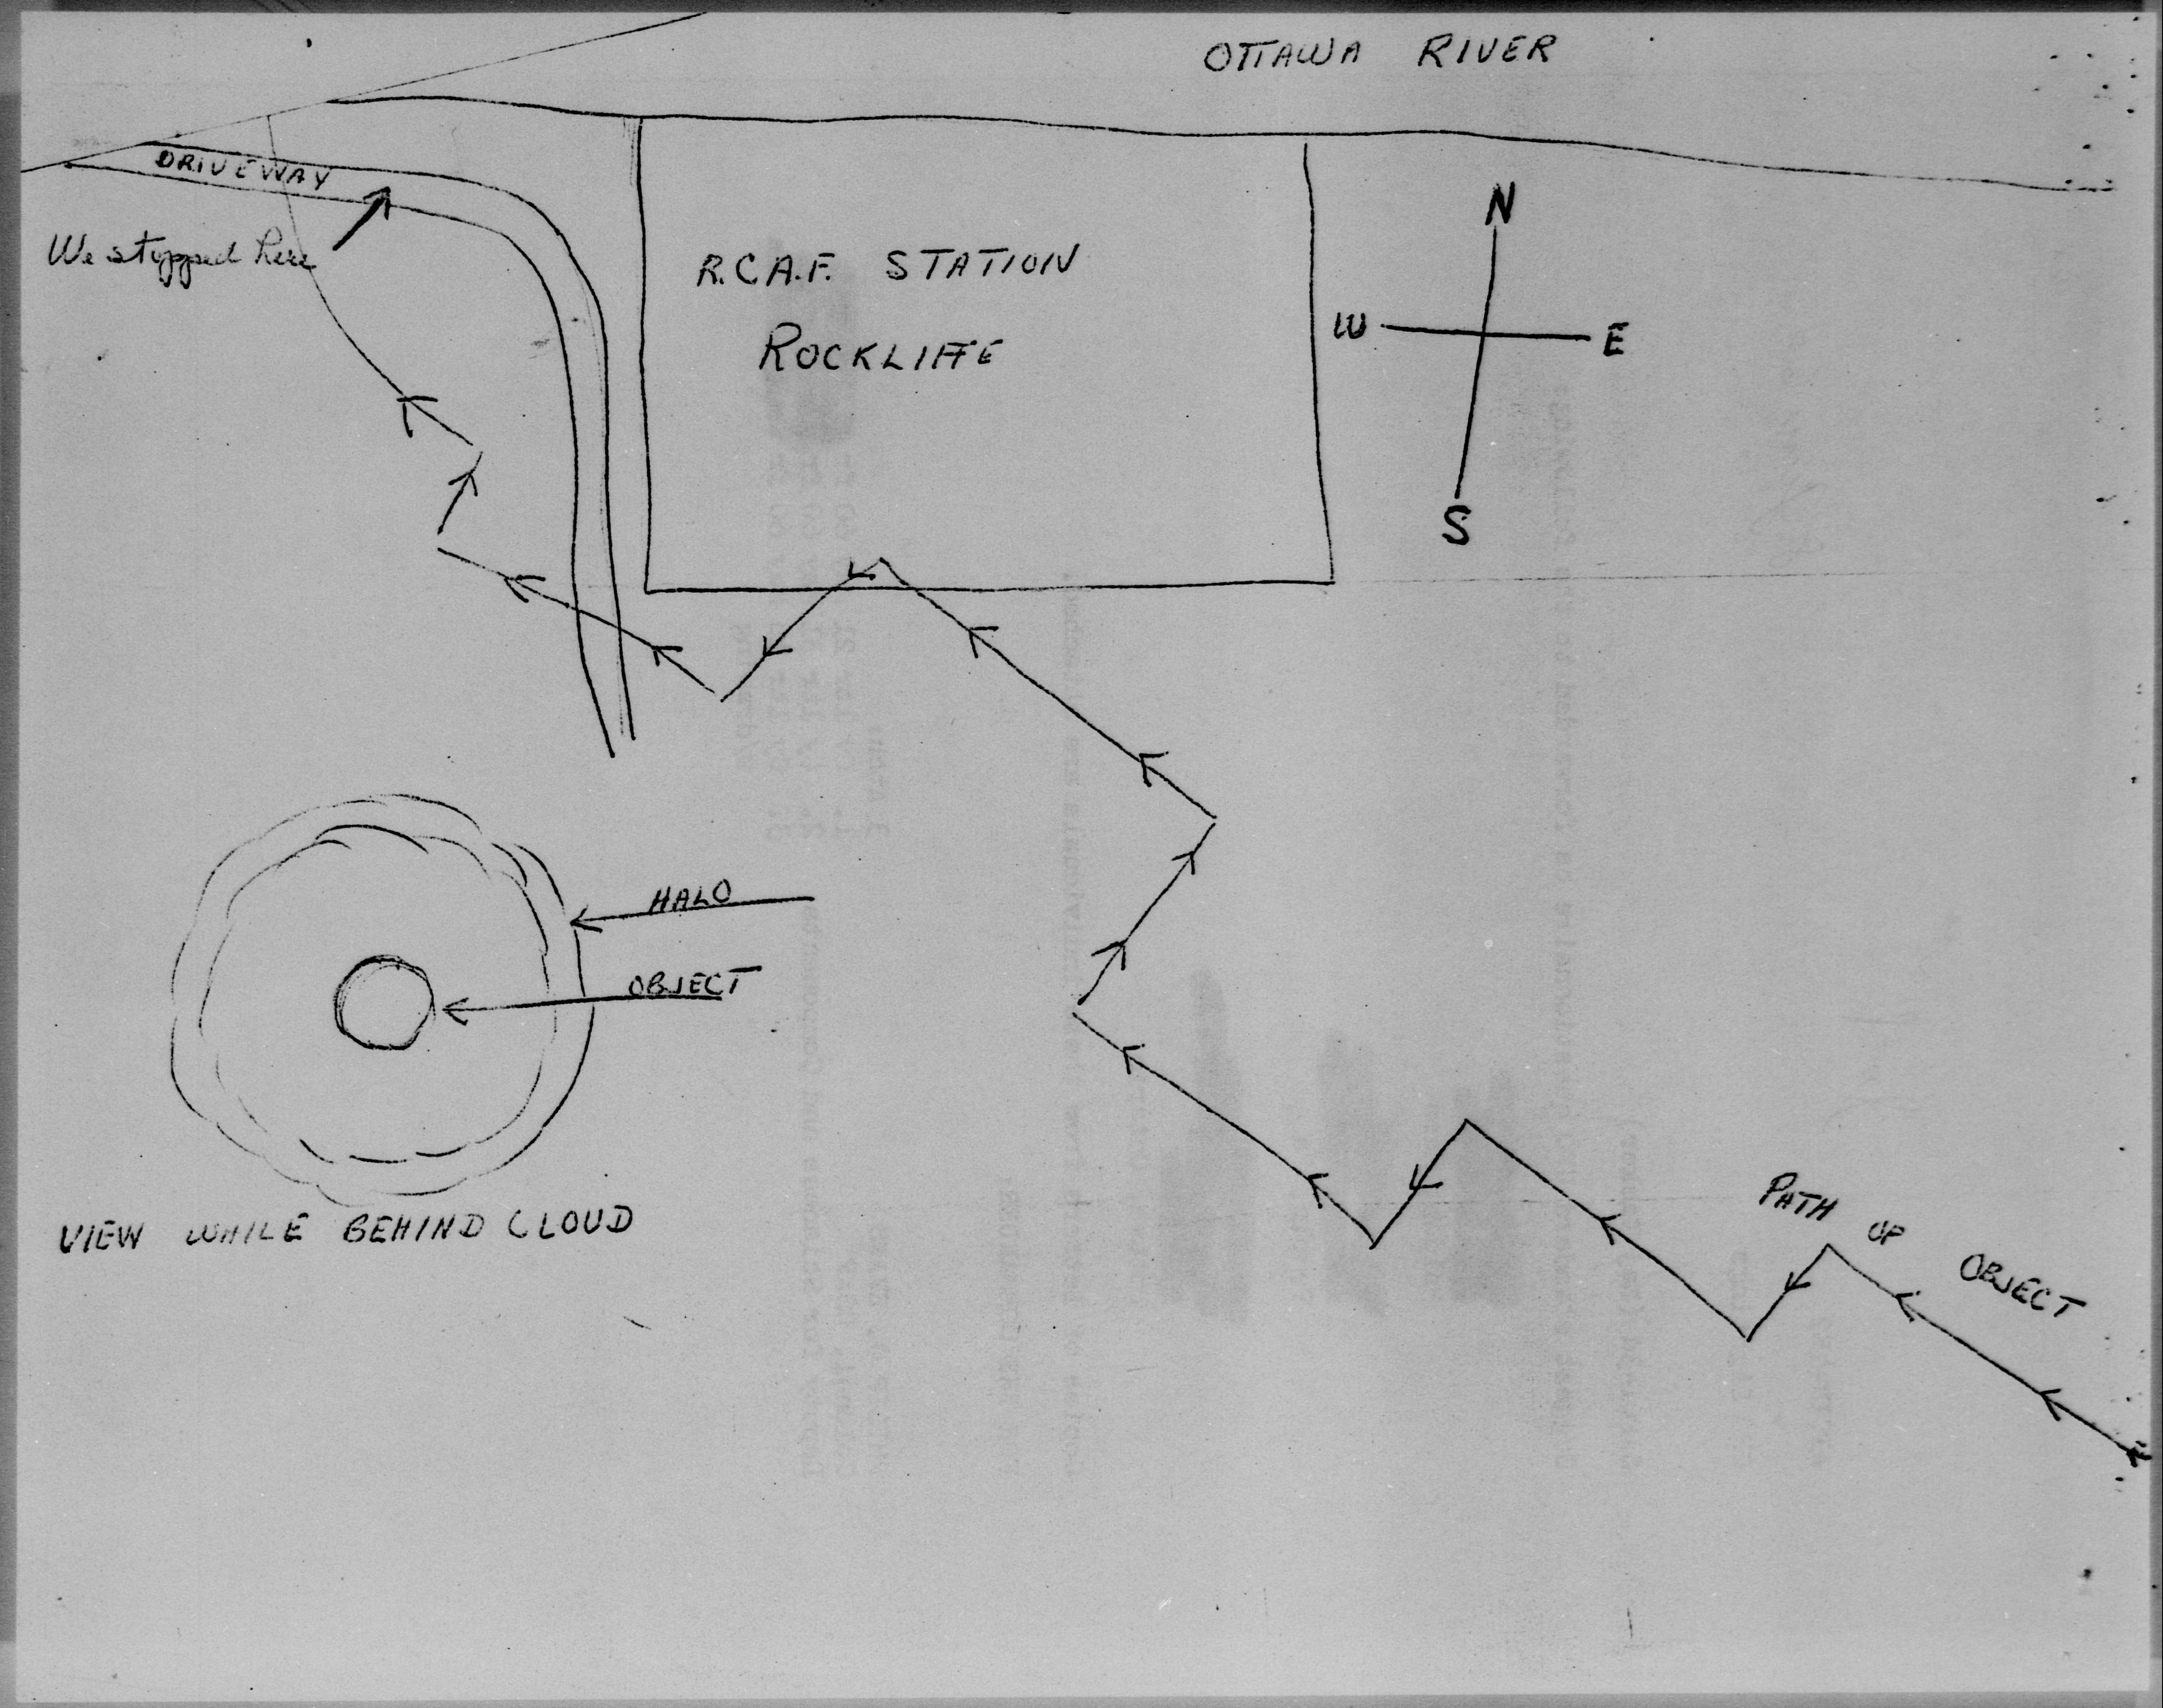 OTTAWA RIVER
DRIVEWAY
We stopped here
R.C.A.F. STATION
ROCKLIFFE
N
W
E
S
HALO
OBJECT
VIEW WHILE BEHIND CLOUD
PATH OF OBJECT